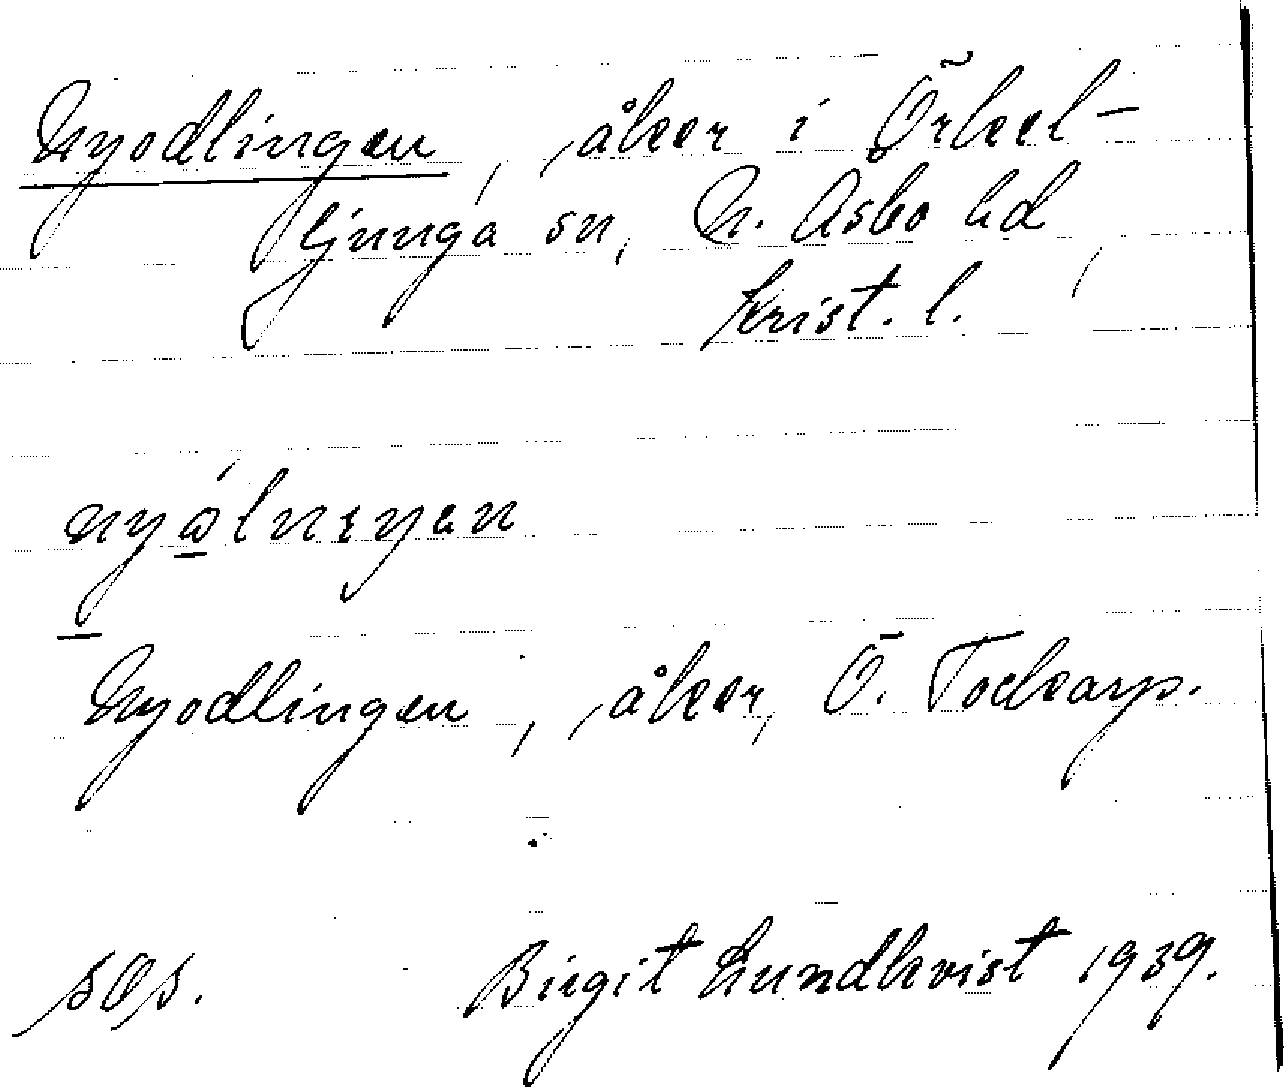 Nyodlingen, åker i Örkel-
ljunga sn, N. Åsbo hd,
Krist. l.
Nyodlingen, åker, Ö. Tockarp.
Birgit Lundkvist 1939.